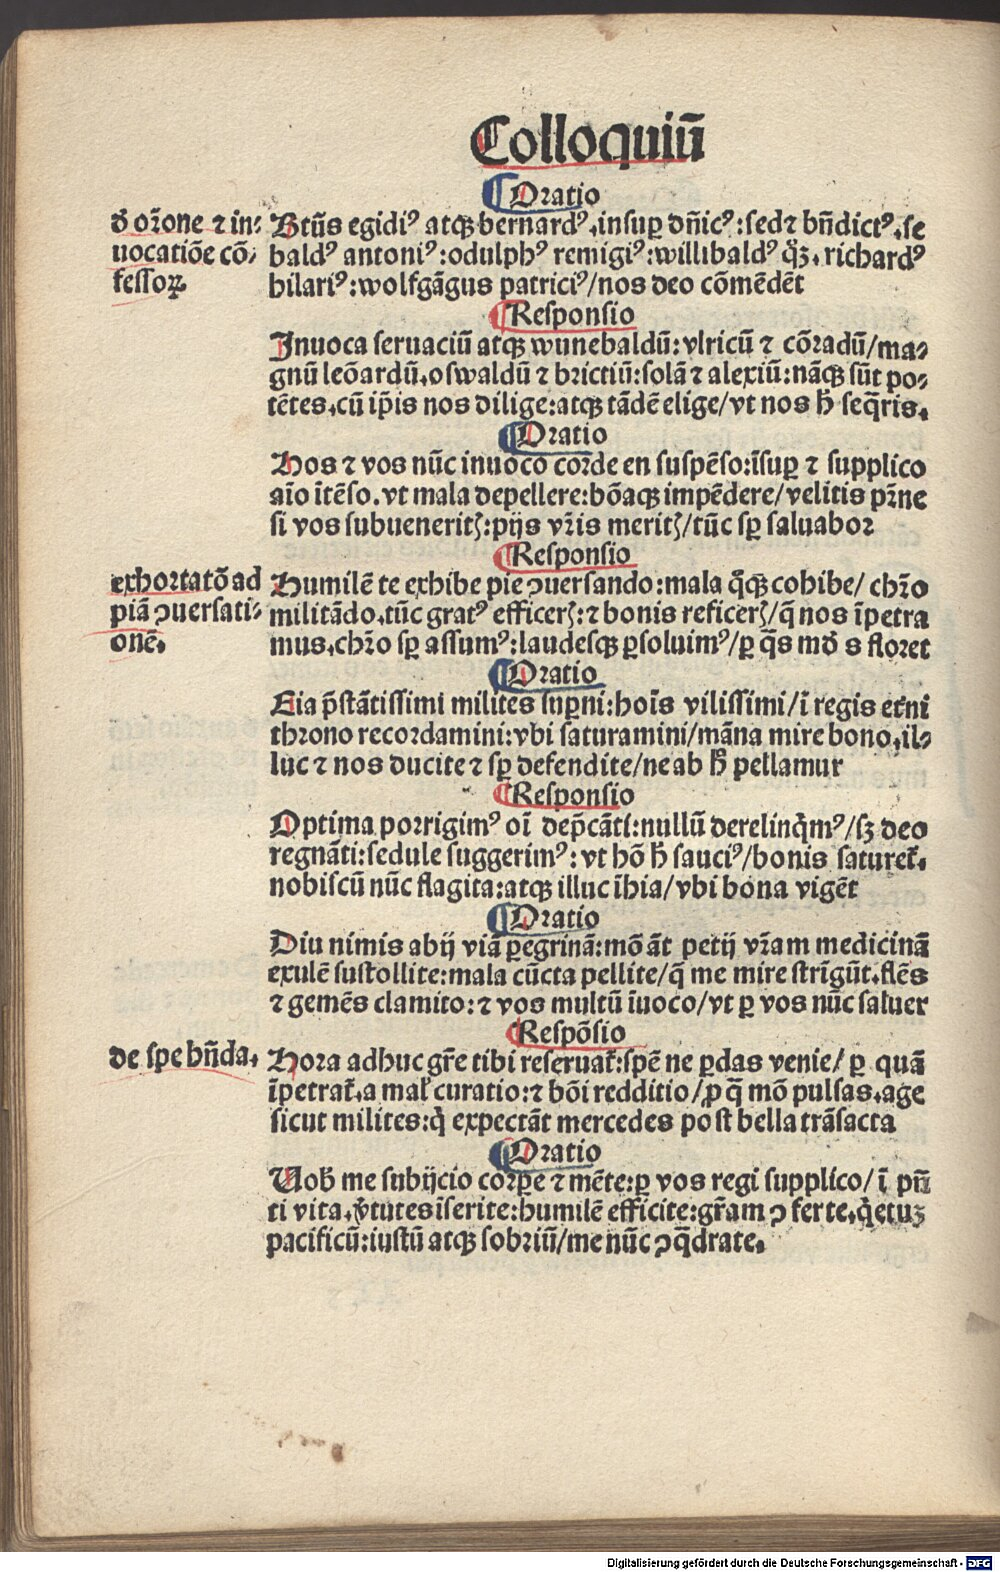 Colloquiū
¶Oratio
ꝺ̄ or̄one ⁊ in⸗
uocatiōe cō⸗
fessoꝝ
Btūs egidiꝰ atqꝫ bernardꝰ.insuꝑ dn̄icꝰ:sed⁊ bn̄dictꝰ.se
baldꝰ antoniꝰ:odulphꝰ remigiꝰ:willibaldꝰ qͦꝫ.richardꝰ
hilariꝰ:wolfgāgus patriciꝰ/nos deo cōmēdēt
¶Responsio
Inuoca seruaciū atqꝫ wunebaldū:vlricū ⁊ cōradū/ma⸗
gnū leōardū.oswaldū ⁊ brictiū:solā ⁊ alexiū:nāqꝫ sūt po⸗
tētes.cū ip̄is nos dilige:atqꝫ tādē elige/vt nos h̄ seq̄ris.
¶Oratio
Hos ⁊ vos nūc inuoco corde en suspēso:īsuꝑ ⁊ supplico
aīo ītēso.vt mala depellere:bōaqꝫ impēdere/velitis pr̄ne
si vos subueneritꝭ:pijs vr̄is meritꝭ/tūc sꝑ saluabor
¶Responsio
exhortatō ad
piā ꝯuersati⸗
onē.
Humilē te exhibe pie ꝯuersando:mala qͣ̄qꝫ cohibe/ chr̄o
militādo.tūc gratꝰ efficerꝭ:⁊ bonis reficerꝭ/q̄ nos īpetra
mus.chr̄o sꝑ assumꝰ:laudesqꝫ ꝑsoluimꝰ/ꝑ q̄s mōs floret
¶Oratio
Eia p̄stātissimi milites suꝑni:hoīs vilissimi/ī regis et̄ni
throno recordamini:vbi saturamini/māna mire bono.il⸗
luc ⁊ nos ducite ⁊ sꝑ defendite/ne ab h̄ pellamur
¶Responsio
Optima porrigimꝰ oī dep̄cāti:nullū derelinq̄mꝰ/sꝫ deo
regnāti:sedule suggerimꝰ:vt hō h̄ sauciꝰ/bonis saturet̄.
nobiscū nūc flagita:atqꝫ illuc īhia/vbi bona vigēt
¶Oratio
Diu nimis abij viā ꝑegrinā:mō āt petij vr̄am medicinā
exulē sustollite:mala cūcta pellite/q̄ me mire strīgūt.flēs
⁊ gemēs clamito:⁊ vos multū īuoco/vt ꝑ vos nūc saluer
¶Respōsio
de spe hn̄da.
Hora adhuc gr̄e tibi reseruat̄:spē ne ꝑdas venie/ ꝑ quā
īpetrat̄.a mal̄ curatio:⁊ bōi redditio/ꝓ q̄ mō pulsas.age
sicut milites:q̇ expectāt mercedes post bella trāsacta
¶Oratio
Uob̄ me subijcio corꝑe ⁊ mēte:ꝑ vos regi supplico/ī pn̄
ti vita.v̄tutes īserite:humilē efficite:gr̄am ꝯferte.q̇etuꝫ
pacificū:iustū atqꝫ sobriū/me nūc ꝯq̄drate.
Digitalisierung gefördert durch die Deutsche Forschungsgemeinschaft - DFG